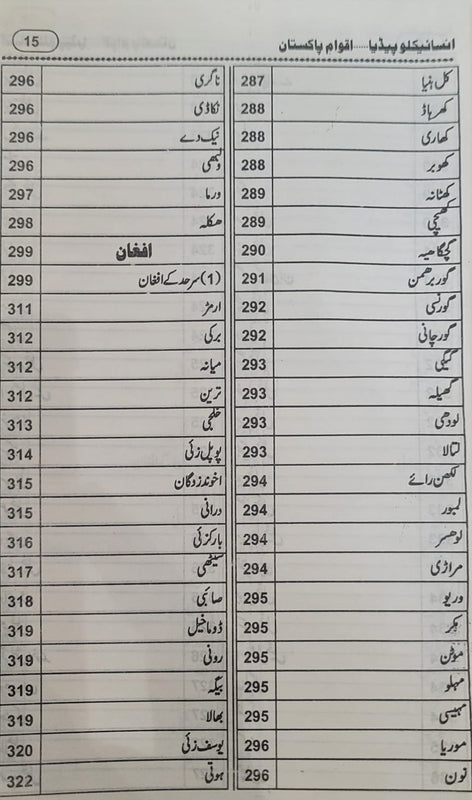 انسائیکلوپیڈیا.....اقوام پاکستان 15
کل ہنیا 287
کھرہاڈ 288
کھاری 288
کھوبر 288
کھٹانہ 289
کھچی 289
گچگاھیہ 290
گوربرھمن 291
گورسی 292
گورچانی 292
گیگی 293
گھیلہ 293
لودھی 293
لٹالا 293
لکھن رائے 294
لمبور 294
لوھسر 294
مراڑی 294
وریو 295
ہکر 295
موٹن 295
مہلو 295
مہیسی 295
موریا 296
نون 296
ناگری 296
نکاڈی 296
نیک دے 296
ولبھی 296
ورما 297
ھسکلہ 298
افغان 299
(1) سرحد کے افغان 299
ارمڑ 311
برکی 312
میانہ 312
ترین 312
خلجی 313
پوپل زئی 314
اخوندزدگان 315
درانی 315
بارکزئی 316
سیٹھی 317
صابی 318
ڈوماخیل 319
رونی 319
بیگہ 319
بھالا 319
یوسف زئی 320
ہوتی 322